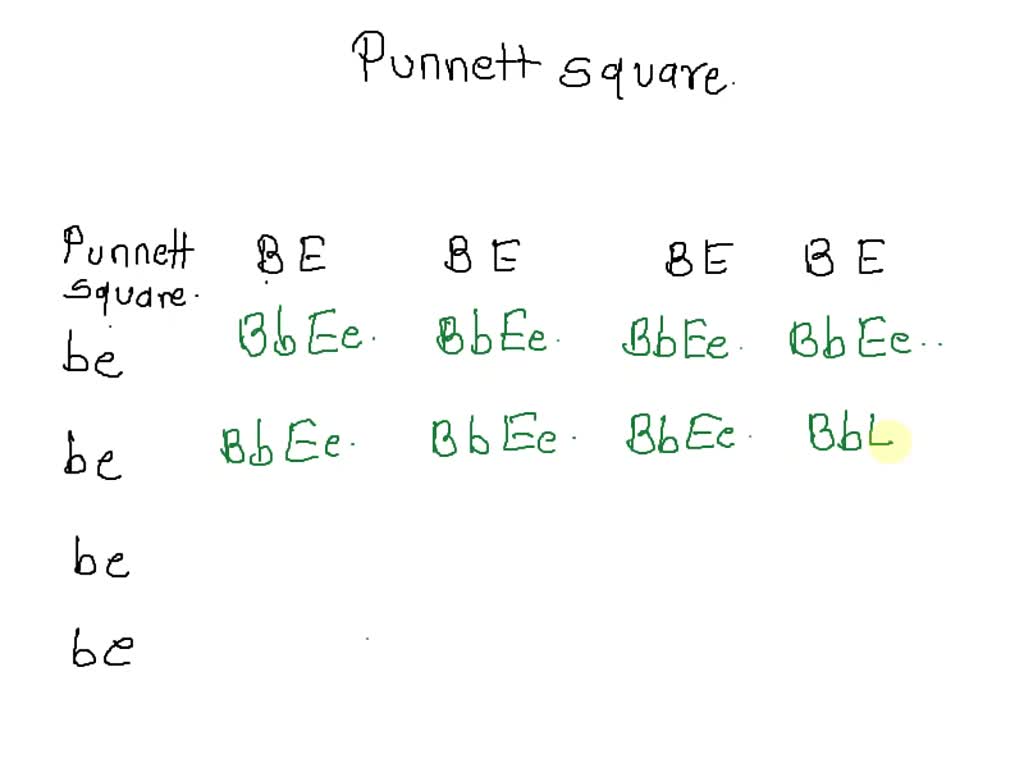 Punnett square.
Punnett square. BE BE BE BE
be BbEe. BbEe. BbEe. BbEe..
be BbEe. BbEe. BbEe. BbL
be
be